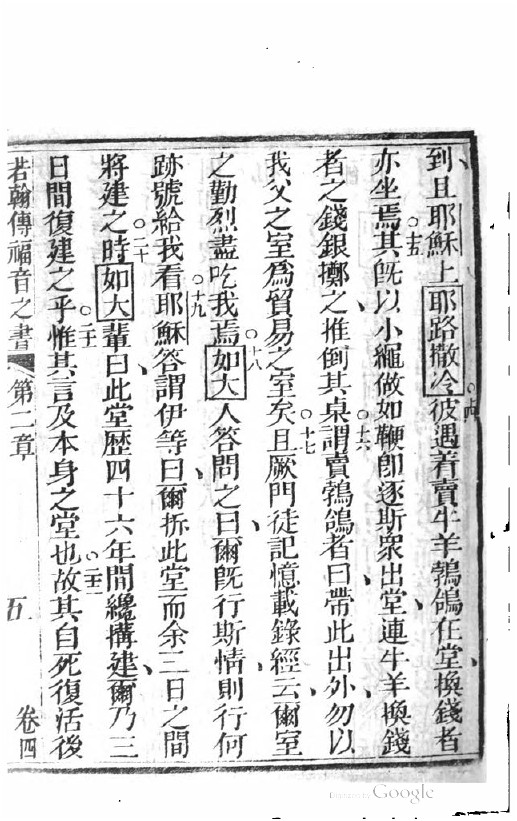 到且耶穌上耶路撒冷彼遇着賣牛羊鵓鴿在堂換錢者
亦坐焉○十五其旣以小繩做如鞭卽逐斯衆出堂連牛羊換錢
者之錢銀擲之推倒其桌○十六謂賣鵓鴿者曰帶此出外勿以
我父之室爲貿易之室矣○十七且厥門徒記憶載錄經云爾室
之勤烈盡吃我焉○十八如大人答問之曰爾旣行斯情則行何
跡號給我看○十九耶穌答謂伊等曰爾拆此堂而余三日之間
將建之時○二十如大輩曰此堂歷四十六年間纔搆建爾乃三
日間復建之乎○二一惟其言及本身之堂也○二二故其自死復活後
若翰傳福音之書 第二章 五 卷四
Digitized by Google